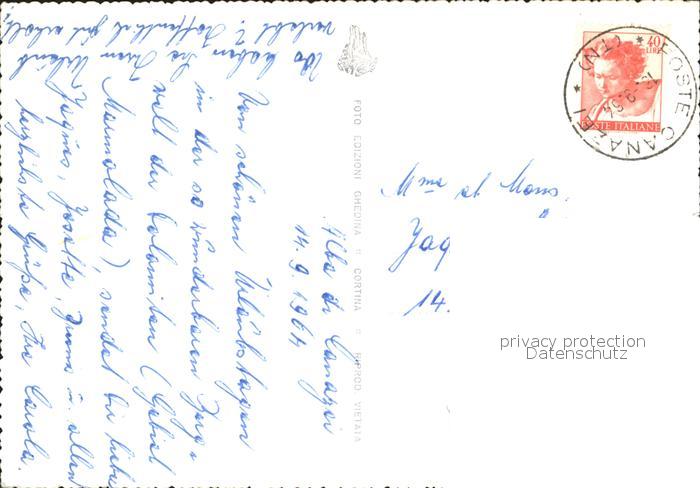 Alba di Canazei
14.9.1964
Von schönen Urlaubstagen
in der so wunderbaren Berg-
welt der Dolomiten (Gebiet
Marmolada), sendet dir liebe
Jaques, Josette, Irma u. allen
herzlichste Grüße, Ihre Carola.
Wo haben Sie Ihren Urlaub
verlebt? Hoffentlich gut erholt,
FOTO EDIZIONI GHEDINA CORTINA RIPROD. VIETATA
40
LIRE
POSTE ITALIANE
POSTE CANAZEI * (TN) *
Mme et Mons.
Jaq
14.
privacy protection
Datenschutz